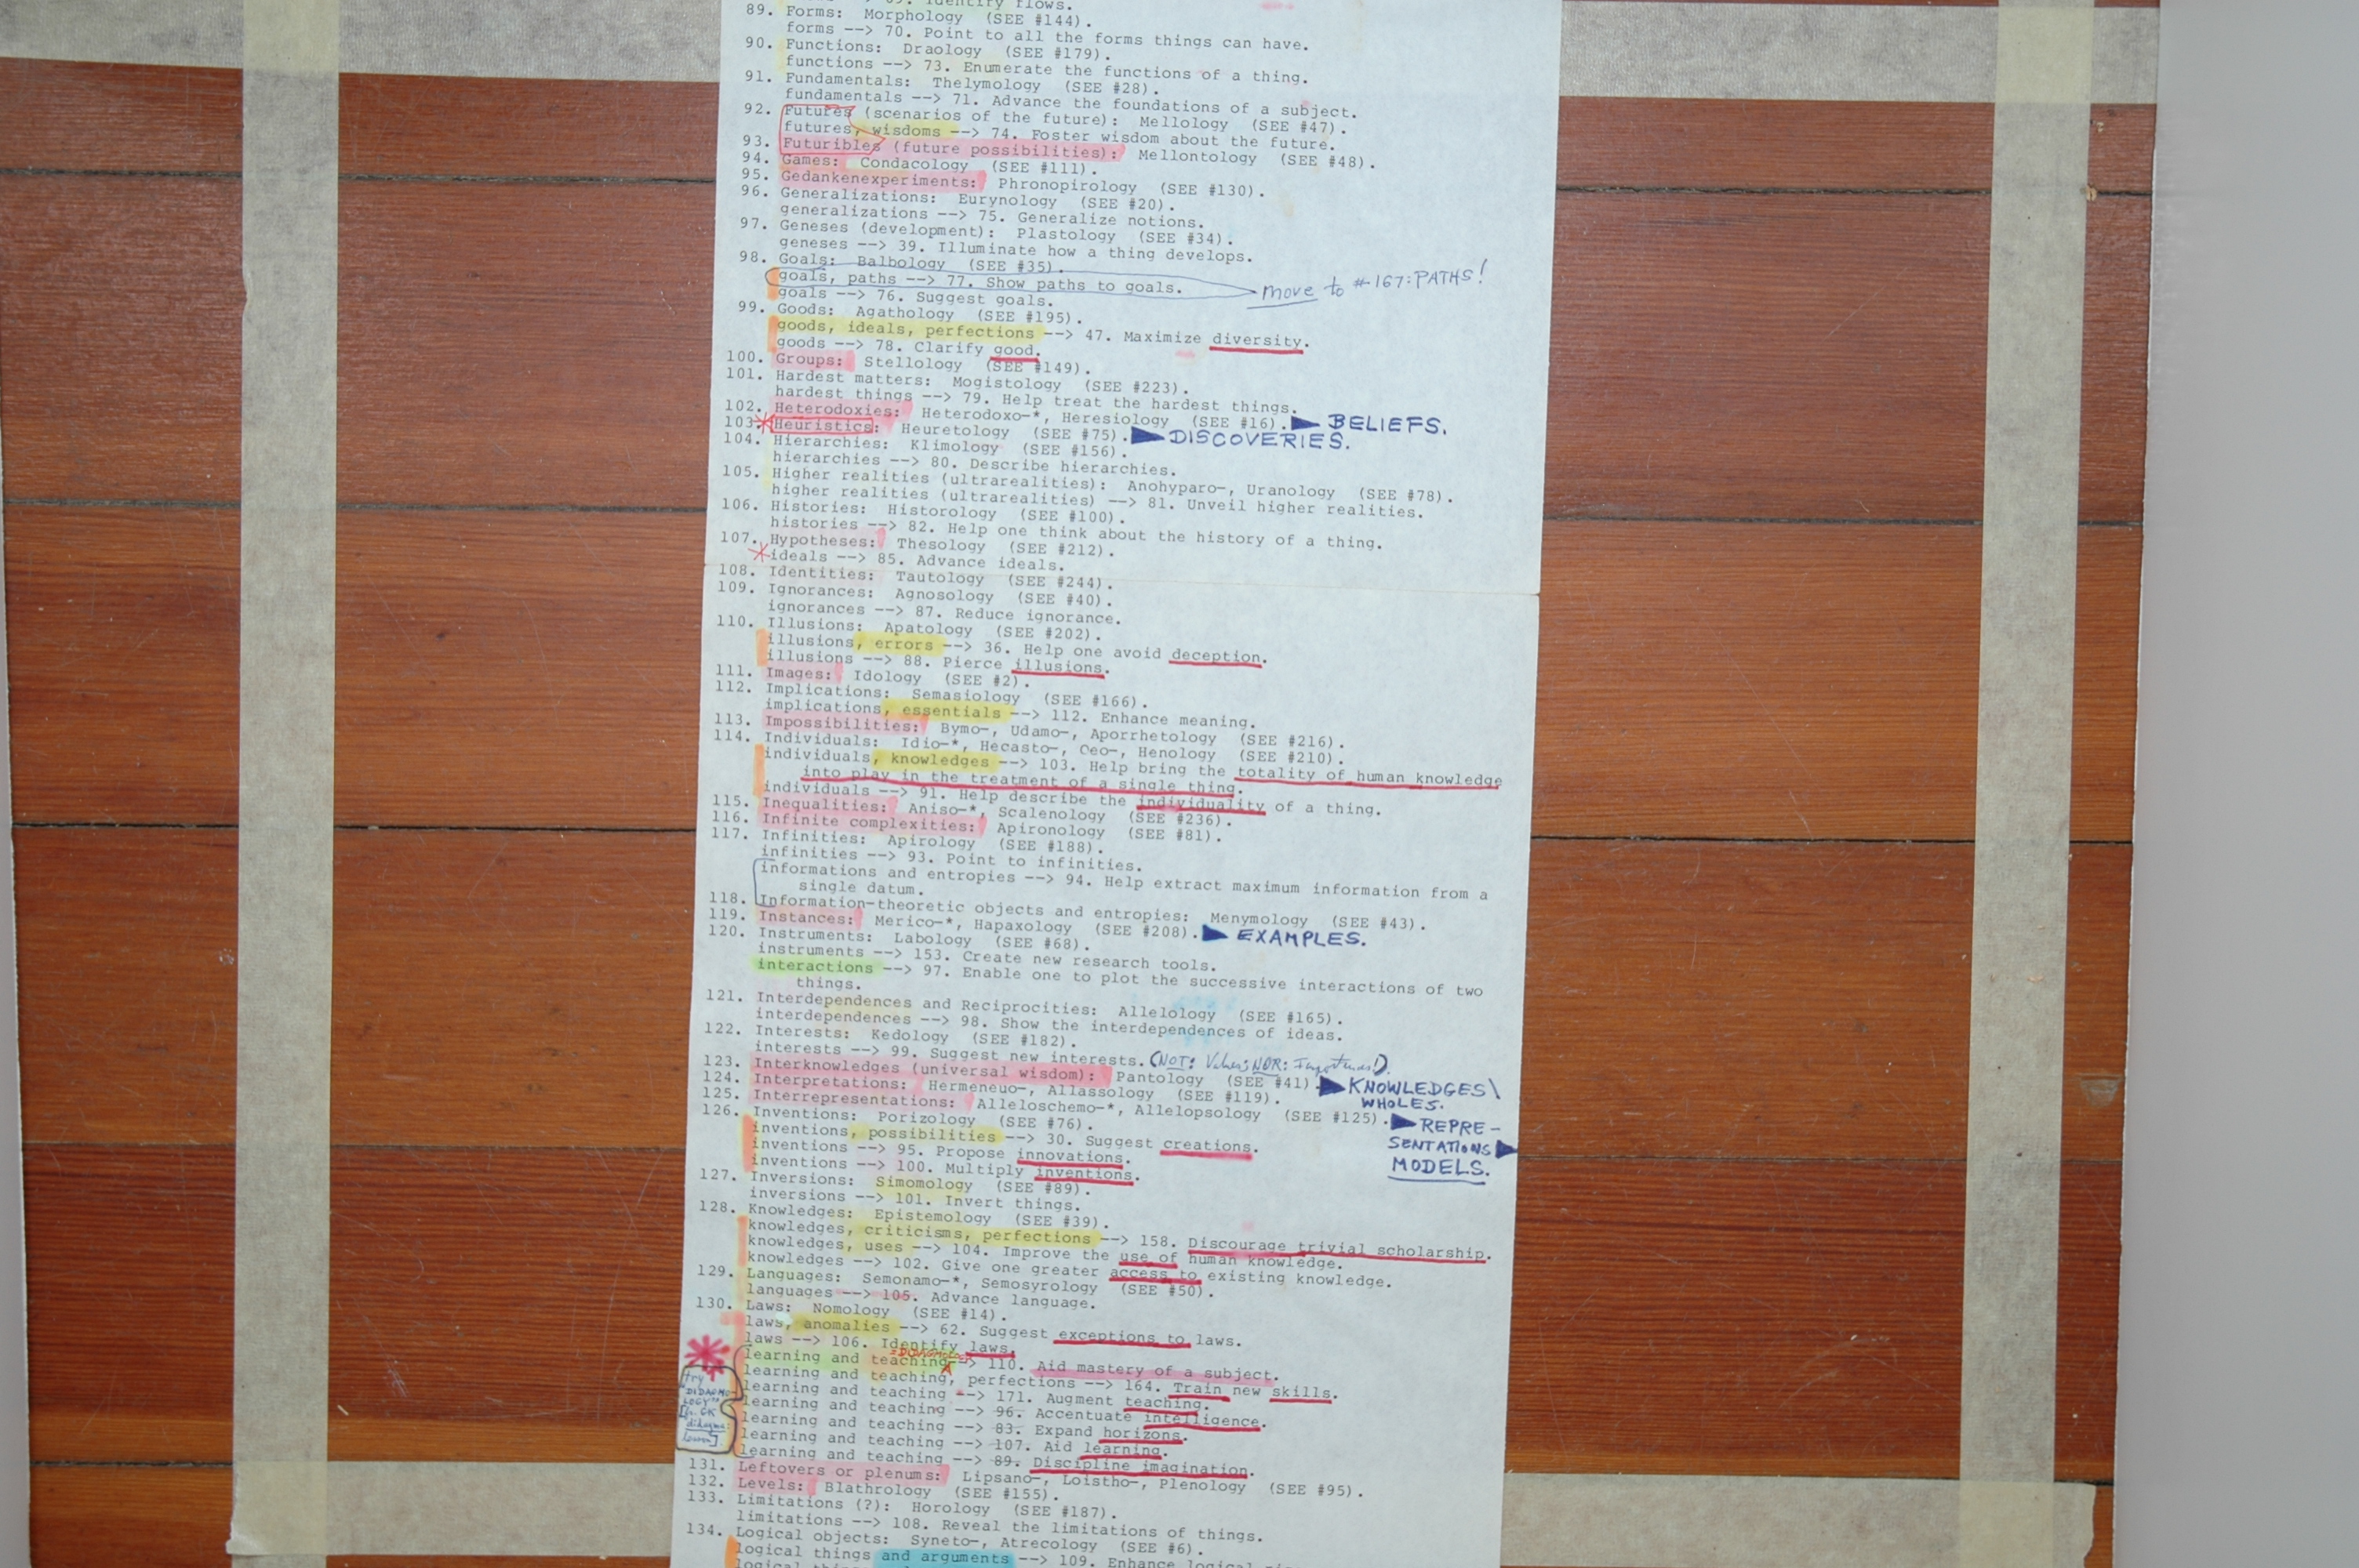 89. Identify flows.
89. Forms: Morphology (SEE #144).
forms --> 70. Point to all the forms things can have.
90. Functions: Draology (SEE #179).
functions --> 73. Enumerate the functions of a thing.
91. Fundamentals: Thelymology (SEE #28).
fundamentals --> 71. Advance the foundations of a subject.
92. Futures (scenarios of the future): Mellology (SEE #47).
futures, wisdoms --> 74. Foster wisdom about the future.
93. Futuribles (future possibilities): Mellontology (SEE #48).
94. Games: Condacology (SEE #111).
95. Gedankenexperiments: Phronopirology (SEE #130).
96. Generalizations: Eurynology (SEE #20).
generalizations --> 75. Generalize notions.
97. Geneses (development): Plastology (SEE #34).
geneses --> 39. Illuminate how a thing develops.
98. Goals: Balbology (SEE #35).
goals, paths --> 77. Show paths to goals. move to #167: PATHS!
goals --> 76. Suggest goals.
99. Goods: Agathology (SEE #195).
goods, ideals, perfections --> 47. Maximize diversity.
goods --> 78. Clarify good.
100. Groups: Stellology (SEE #149).
101. Hardest matters: Mogistology (SEE #223).
hardest things --> 79. Help treat the hardest things.
102. Heterodoxies: Heterodoxo-*, Heresiology (SEE #16). ► BELIEFS.
103. Heuristics: Heuretology (SEE #75). ► DISCOVERIES.
104. Hierarchies: Klimology (SEE #156).
hierarchies --> 80. Describe hierarchies.
105. Higher realities (ultrarealities): Anohyparo-, Uranology (SEE #78).
higher realities (ultrarealities) --> 81. Unveil higher realities.
106. Histories: Historology (SEE #100).
histories --> 82. Help one think about the history of a thing.
107. Hypotheses: Thesology (SEE #212).
ideals --> 85. Advance ideals.
108. Identities: Tautology (SEE #244).
109. Ignorances: Agnosology (SEE #40).
ignorances --> 87. Reduce ignorance.
110. Illusions: Apatology (SEE #202).
illusions, errors --> 36. Help one avoid deception.
illusions --> 88. Pierce illusions.
111. Images: Idology (SEE #2).
112. Implications: Semasiology (SEE #166).
implications, essentials --> 112. Enhance meaning.
113. Impossibilities: Bymo-, Udamo-, Aporrhetology (SEE #216).
114. Individuals: Idio-*, Hecasto-, Oeo-, Henology (SEE #210).
individuals, knowledges --> 103. Help bring the totality of human knowledge
into play in the treatment of a single thing.
individuals --> 91. Help describe the individuality of a thing.
115. Inequalities: Aniso-*, Scalenology (SEE #236).
116. Infinite complexities: Apironology (SEE #81).
117. Infinities: Apirology (SEE #188).
infinities --> 93. Point to infinities.
informations and entropies --> 94. Help extract maximum information from a
single datum.
118. Information-theoretic objects and entropies: Menymology (SEE #43).
119. Instances: Merico-*, Hapaxology (SEE #208). ► EXAMPLES.
120. Instruments: Labology (SEE #68).
instruments --> 153. Create new research tools.
interactions --> 97. Enable one to plot the successive interactions of two
things.
121. Interdependences and Reciprocities: Allelology (SEE #165).
interdependences --> 98. Show the interdependences of ideas.
122. Interests: Kedology (SEE #182).
interests --> 99. Suggest new interests. (NOT: Values NOR: Importances!).
123. Interknowledges (universal wisdom): Pantology (SEE #41). ► KNOWLEDGES\
WHOLES.
124. Interpretations: Hermeneuo-, Allassology (SEE #119).
125. Interrepresentations: Alleloschemo-*, Allelopsology (SEE #125). ► REPRE-
SENTATIONS ►
MODELS.
126. Inventions: Porizology (SEE #76).
inventions, possibilities --> 30. Suggest creations.
inventions --> 95. Propose innovations.
inventions --> 100. Multiply inventions.
127. Inversions: Simomology (SEE #89).
inversions --> 101. Invert things.
128. Knowledges: Epistemology (SEE #39).
knowledges, criticisms, perfections --> 158. Discourage trivial scholarship.
knowledges, uses --> 104. Improve the use of human knowledge.
knowledges --> 102. Give one greater access to existing knowledge.
129. Languages: Semonamo-*, Semosyrology (SEE #50).
languages --> 105. Advance language.
130. Laws: Nomology (SEE #14).
laws, anomalies --> 62. Suggest exceptions to laws.
laws --> 106. Identify laws.
learning and teaching --> 110. Aid mastery of a subject.
learning and teaching, perfections --> 164. Train new skills.
learning and teaching --> 171. Augment teaching.
learning and teaching --> 96. Accentuate intelligence.
learning and teaching --> 83. Expand horizons.
learning and teaching --> 107. Aid learning.
learning and teaching --> 89. Discipline imagination.
try
"DIDAGMO-
LOGY"
131. Leftovers or plenums: Lipsano-, Loistho-, Plenology (SEE #95).
132. Levels: Blathrology (SEE #155).
133. Limitations (?): Horology (SEE #187).
limitations --> 108. Reveal the limitations of things.
134. Logical objects: Syneto-, Atrecology (SEE #6).
logical things and arguments --> 109. Enhance